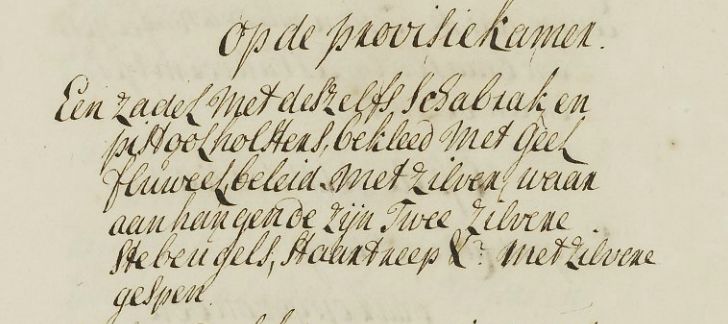 op de provisiekamer.
Een zadel met deszelfs schabrak en
pistoolholsters, bekleed met geel
fluweel, beleid met zilver, waar
aan hangende zijn twee zilvere
stebeugels, staartreep &c: met zilvere
gespen.